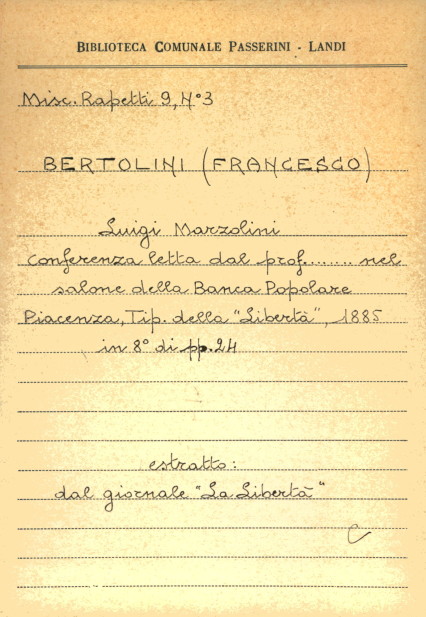 BIBLIOTECA COMUNALE PASSERINI - LANDI
Misc. Rapetti 9, N° 3
BERTOLINI (FRANCESCO)
Luigi Marzolini
Conferenza letta dal prof....... nel
salone della Banca Popolare
Piacenza, Tip. della "Libertà", 1885
in 8° di pp. 24
estratto:
dal giornale "La Libertà"
C